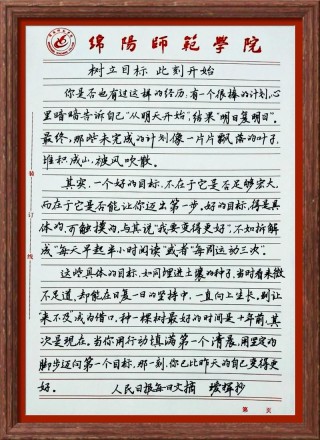 綿陽師範學院
树立目标 此刻开始
你是否也有过这样的经历,有一个很棒的计划,心
里暗暗告诉自己"从明天开始",结果"明日复明日"。
最终,那些未完成的计划像一片片飘落的叶子,
堆积成山,被风吹散。
其实,一个好的目标,不在于它是否足够宏大,
而在于它是否能让你迈出第一步。好的目标,得是具
体的,可触摸的,与其说"我要变得更好",不如拆解
成"每天早起半小时阅读"或者"每周运动三次"。
这些具体的目标,如同埋进土壤的种子,当时看来微
不足道,却能在日复一日的坚持中,一直向上生长。别让
"来不及"成为借口,种一棵树最好的时间是十年前,其
次是现在。当你用行动填满第一个清晨,用坚定的
脚步迈向第一个目标,那一刻,你已比昨天的自己变得更
好。 人民日报每日文摘 辉抄
装
订
线
第 页